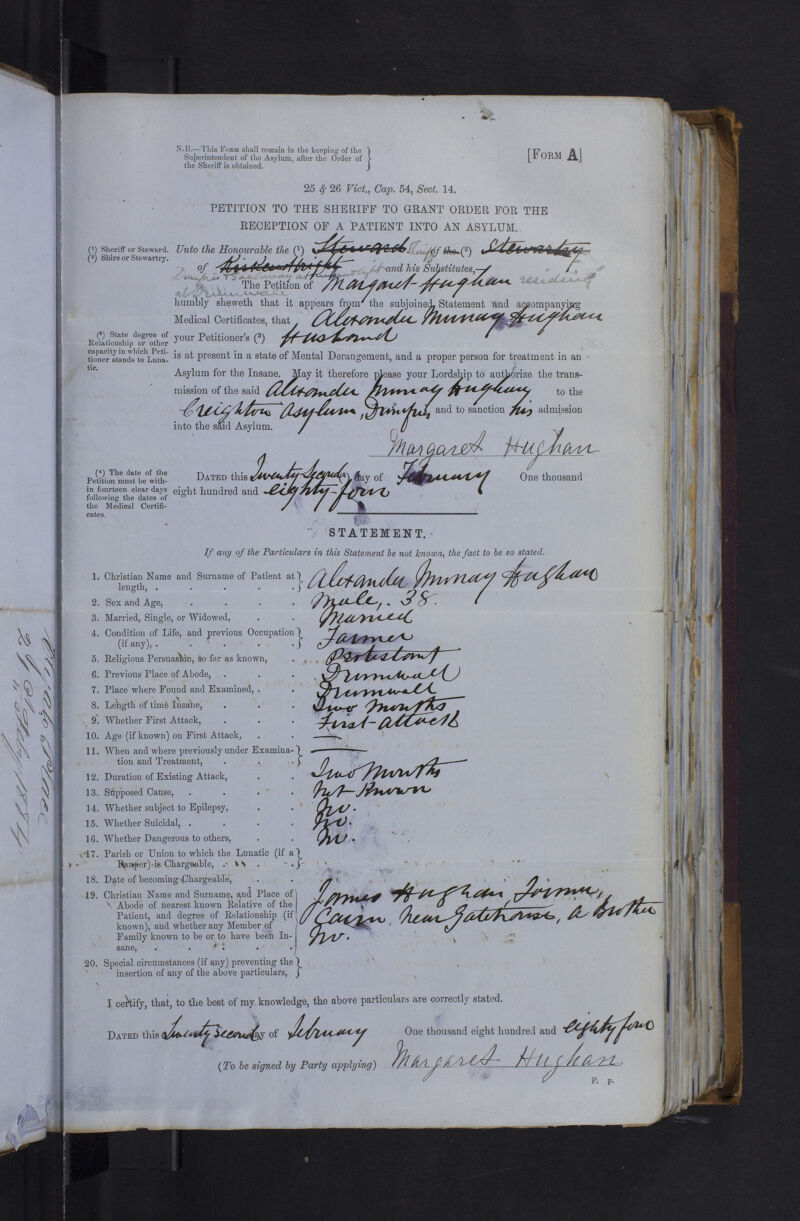 N.B.—This Form shall remain in the keeping of the
Superintendent of the Asylum, after the Order of
the Sheriff is obtained.
[Form A]
25 & 26 Vict., Cap. 54, Sect. 14.
PETITION TO THE SHERIFF TO GRANT ORDER FOR THE
RECEPTION OF A PATIENT INTO AN ASYLUM.
(¹) Sheriff or Steward.
(²) Shire or Stewartry.
Unto the Honourable the (¹) Steward Sheriff of the (²) Stewartry
of Kirkcudbright and his Substitutes,
Dumfries & Galloway at Kirkcudbright
The Petition of Margaret Hughan residing
at Drumwall
humbly sheweth that it appears from the subjoined Statement and accompanying
Medical Certificates, that Alexander Murray Hughan
(³) State degree of
Relationship or other
capacity in which Peti-
tioner stands to Luna-
tic.
your Petitioner's (³) Husband
is at present in a state of Mental Derangement, and a proper person for treatment in an
Asylum for the Insane. May it therefore please your Lordship to authorize the trans-
mission of the said Alexander Murray Hughan to the
Creighton Asylum, Dumfries and to sanction his admission
into the said Asylum.
Margaret Hughan
(⁴) The date of the
Petition must be with-
in fourteen clear days
following the dates of
the Medical Certifi-
cates.
Dated this Twenty Second (⁴) day of February One thousand
eight hundred and eighty-four
STATEMENT.
If any of the Particulars in this Statement be not known, the fact to be so stated.
1. Christian Name and Surname of Patient at
length, . Alexander Murray Hughan
2. Sex and Age, Male, . 38.
3. Married, Single, or Widowed, Married
4. Condition of Life, and previous Occupation
(if any), . Farmer
5. Religious Persuasion, so far as known, Protestant
6. Previous Place of Abode, Drumwall
7. Place where Found and Examined, Drumwall
8. Length of time Insane, Two Months
9. Whether First Attack, First Attack
10. Age (if known) on First Attack, —
11. When and where previously under Examina-
tion and Treatment, —
12. Duration of Existing Attack, Two Months
13. Supposed Cause, Not Known
14. Whether subject to Epilepsy, No.
15. Whether Suicidal, No.
16. Whether Dangerous to others, No.
17. Parish or Union to which the Lunatic (if a
Pauper) is Chargeable,
18. Date of becoming Chargeable,
19. Christian Name and Surname, and Place of
Abode of nearest known Relative of the
Patient, and degree of Relationship (if
known), and whether any Member of
Family known to be or to have been In-
sane,
James Hughan, Farmer,
Cairn, Near Gatehouse, a Brother
No.
20. Special circumstances (if any) preventing the
insertion of any of the above particulars,
I certify, that, to the best of my knowledge, the above particulars are correctly stated.
Dated this Twenty Second day of February One thousand eight hundred and eighty four
(To be signed by Party applying) Margaret Hughan
P. p.